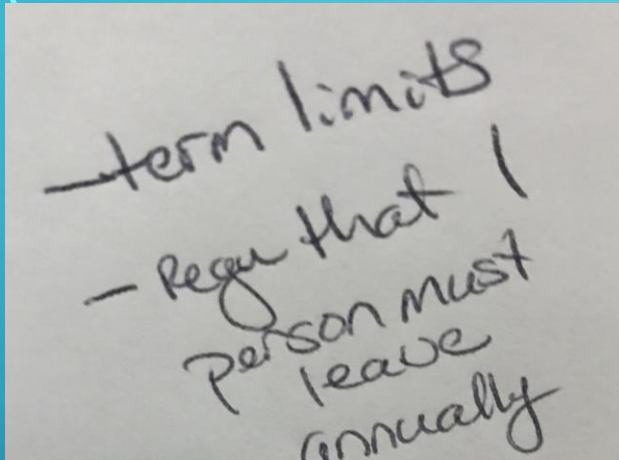 -term limits
- Requ that 1
person must
leave
annually